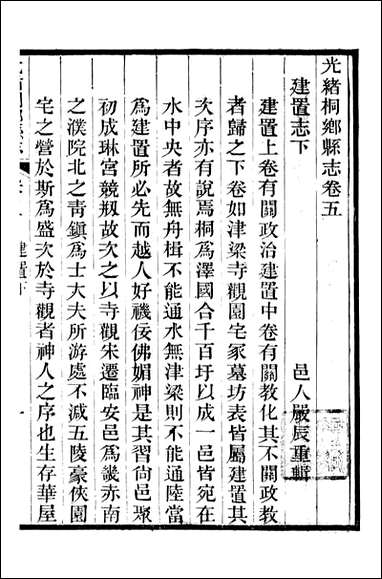 光緒桐鄉縣志卷五
建置志下
邑人嚴辰重輯
建置上卷有關政治建置中卷有關教化其不關政教
者歸之下卷如津梁寺觀園宅冢墓坊表皆屬建置其
次序亦有說焉桐爲澤國合千百圩以成一邑皆宛在
水中央者故無舟楫不能通水無津梁則不能通陸當
爲建置所必先而越人好禨佞佛媚神是其習尙邑聚
初成琳宮競剏故次之以寺觀宋遷臨安邑爲畿赤南
之濮院北之靑鎭爲士大夫所游處不減五陵豪俠園
宅之營於斯爲盛次於寺觀者神人之序也生存華屋
建置下
一